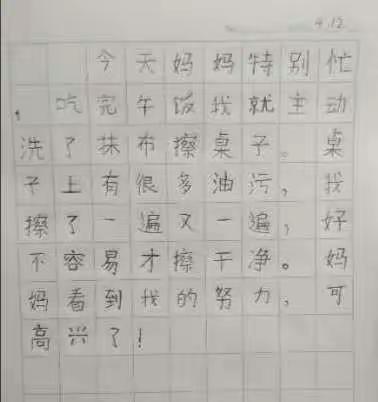 4.12
今天妈妈特别忙
，吃完午饭我就主动
洗了抹布擦桌子。桌
子上有很多油污，我
擦了一遍又一遍，好
不容易才擦干净。妈
妈看到我的努力，可
高兴了！